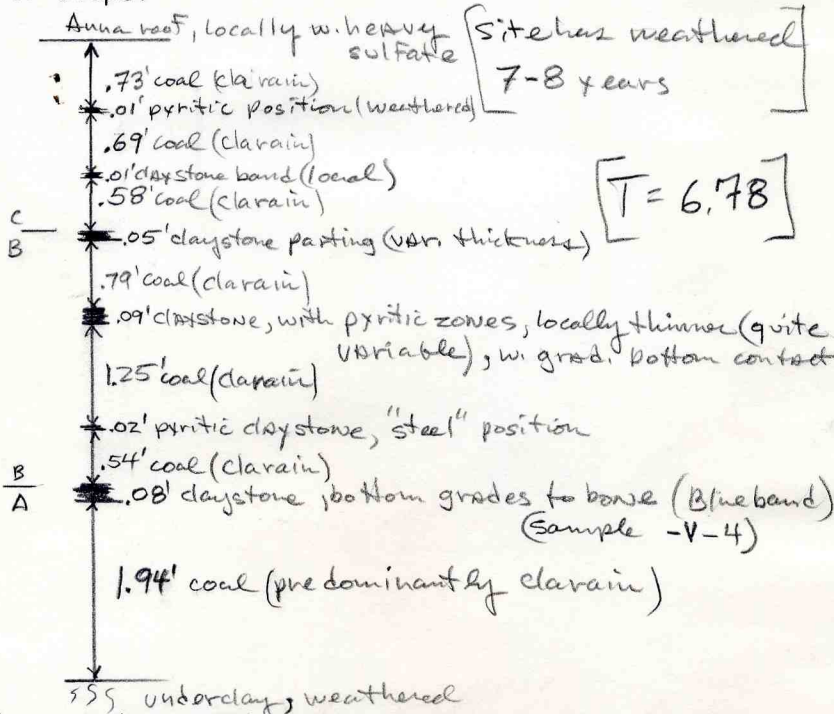 Anna roof, locally w. heavy
sulfate
[Site has weathered
7-8 years]
.73' coal (clarain)
.01' pyritic position (weathered)
.69' coal (clarain)
.01' claystone band (local)
.58' coal (clarain)
[T = 6.78]
C
B
.05' claystone parting (var. thickness)
.79' coal (clarain)
.09' claystone, with pyritic zones, locally thinner (quite
variable), w. grad. bottom contact
1.25' coal (clarain)
.02' pyritic claystone, "steel" position
.54' coal (clarain)
B
A
.08' claystone, bottom grades to bone (Blue band)
(Sample -V-4)
1.94' coal (predominantly clarain)
underclay, weathered